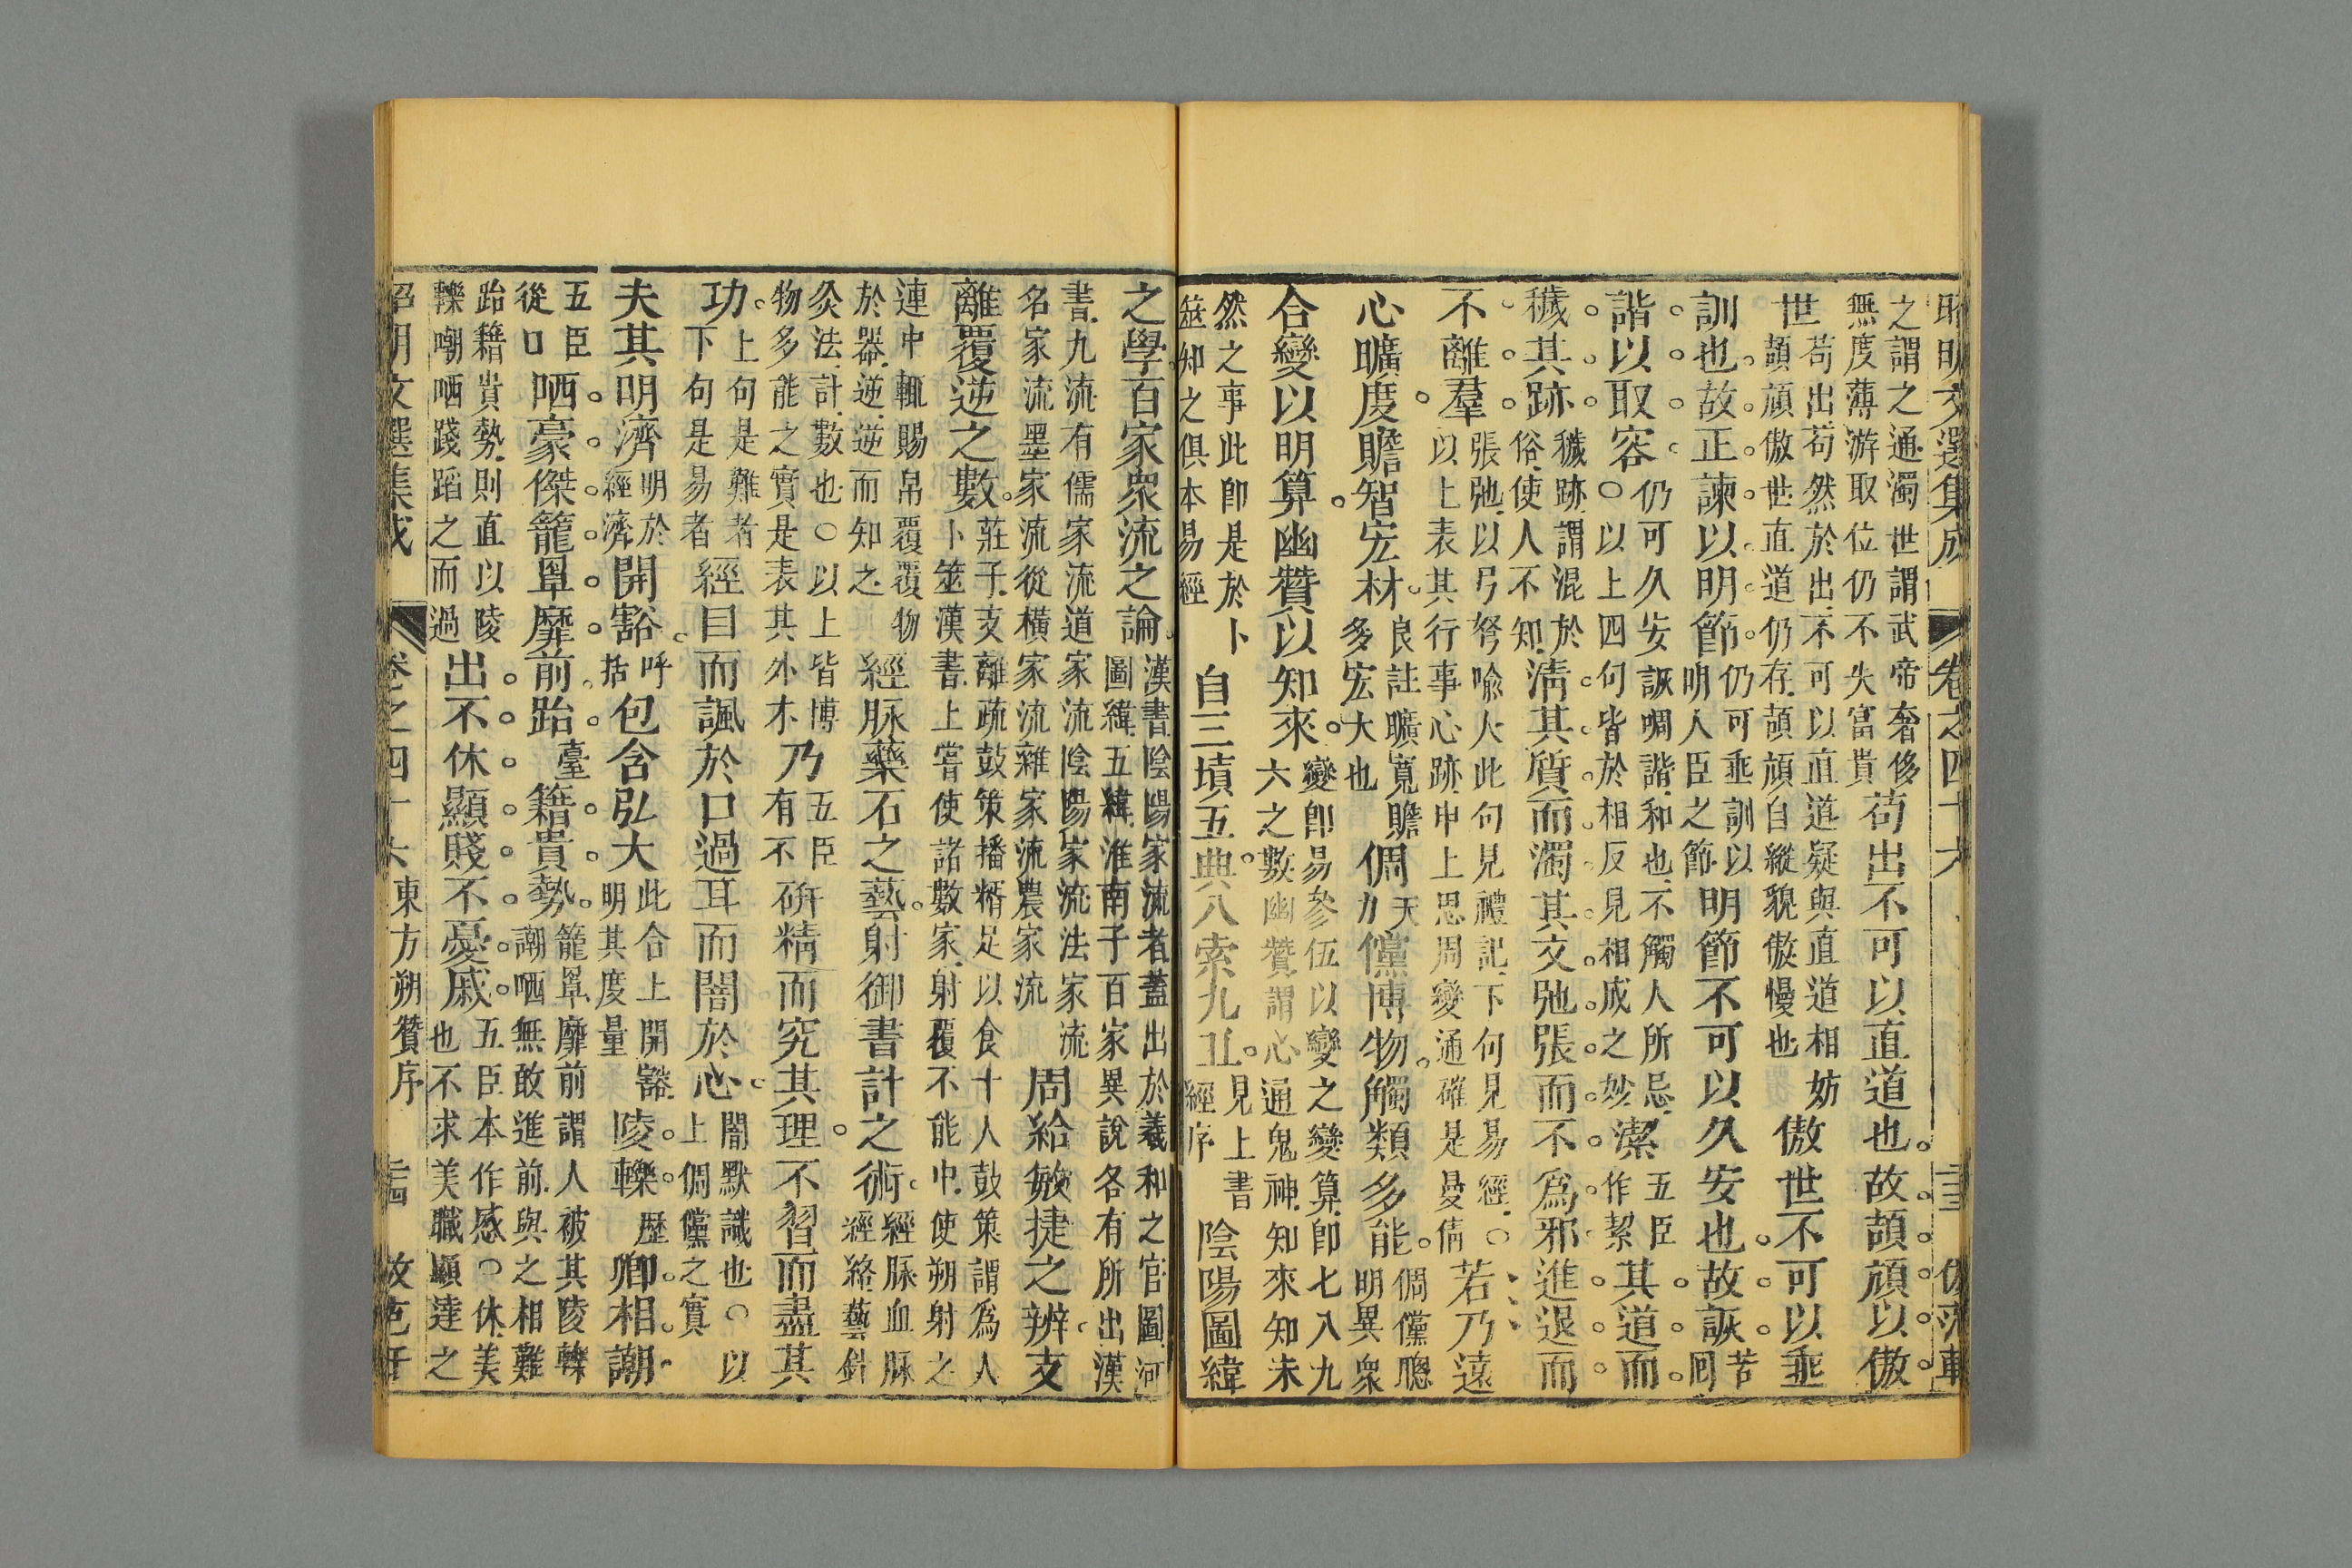 昭明文選集成 卷之四十六
之謂之通濁世謂武帝奢侈
無度薄游取位仍不失富貴
苟出不可以直道也故頡頏以傲
世
苟出苟然於出不可以直道疑與直道相妨
頡頏傲世直道仍存頡頏自縱貌傲慢也
傲世不可以垂
訓也故正諫以明節
仍可垂訓以
明人臣之節
明節不可以久安也故詼
苦
囘
諧以取容
仍可久安詼啁諧和也不觸人所忌
○以上四句皆於相反見相成之妙
潔
五臣
作絜
其道而
穢其跡
穢跡謂混於
俗使人不知
清其質而濁其文弛張而不爲邪進退而
不離羣
張弛以弓弩喻人此句見禮記下句見易經○
以上表其行事心跡申上思周變通確是曼倩
若乃遠
心曠度贍智宏材
良註曠寬贍
多宏大也
倜
天
力
儻博物觸類多能
倜儻聰
明異衆
合變以明算幽贊以知來
變卽易參伍以變之變算卽七八九
六之數幽贊謂心通鬼神知來知未
然之事此卽是於卜
筮知之俱本易經
自三墳五典八索九丘
見上書
經序
陰陽圖緯
之學百家衆流之論
漢書陰陽家流者蓋出於羲和之官圖河
圖緯五緯淮南子百家異說各有所出漢
書九流有儒家流道家流陰陽家流法家流
名家流墨家流從橫家流雜家流農家流
周給敏捷之辨支
離覆逆之數
莊子支離疏鼓策播糈足以食十人鼓策謂爲人
卜筮漢書上嘗使諸數家射覆不能中使朔射之
連中輒賜帛覆覆物
於器逆逆而知之
經脉藥石之藝射御書計之術
經脉血脉
經絡藝針
灸法計數也○以上皆博
物多能之實是表其外才
乃
五臣
有不
研精而究其理不習而盡其
功
上句是難者
下句是易者
經目而諷於口過耳而闇於心
闇默識也○以
上倜儻之實
夫其明濟
明於
經濟
開豁
呼
括
包含弘大
此合上開豁
明其度量
陵轢
歷
卿相謿
五臣
從口
哂豪傑籠罩靡前跆
臺
籍貴勢
籠罩靡前謂人被其陵轢
謿哂無敢進前與之相難
跆籍貴勢則直以陵
轢嘲哂踐蹈之而過
出不休顯賤不憂戚
五臣本作感○休美
也不求美職顯達之
昭明文選集成 卷之四十六 東方朔贊序